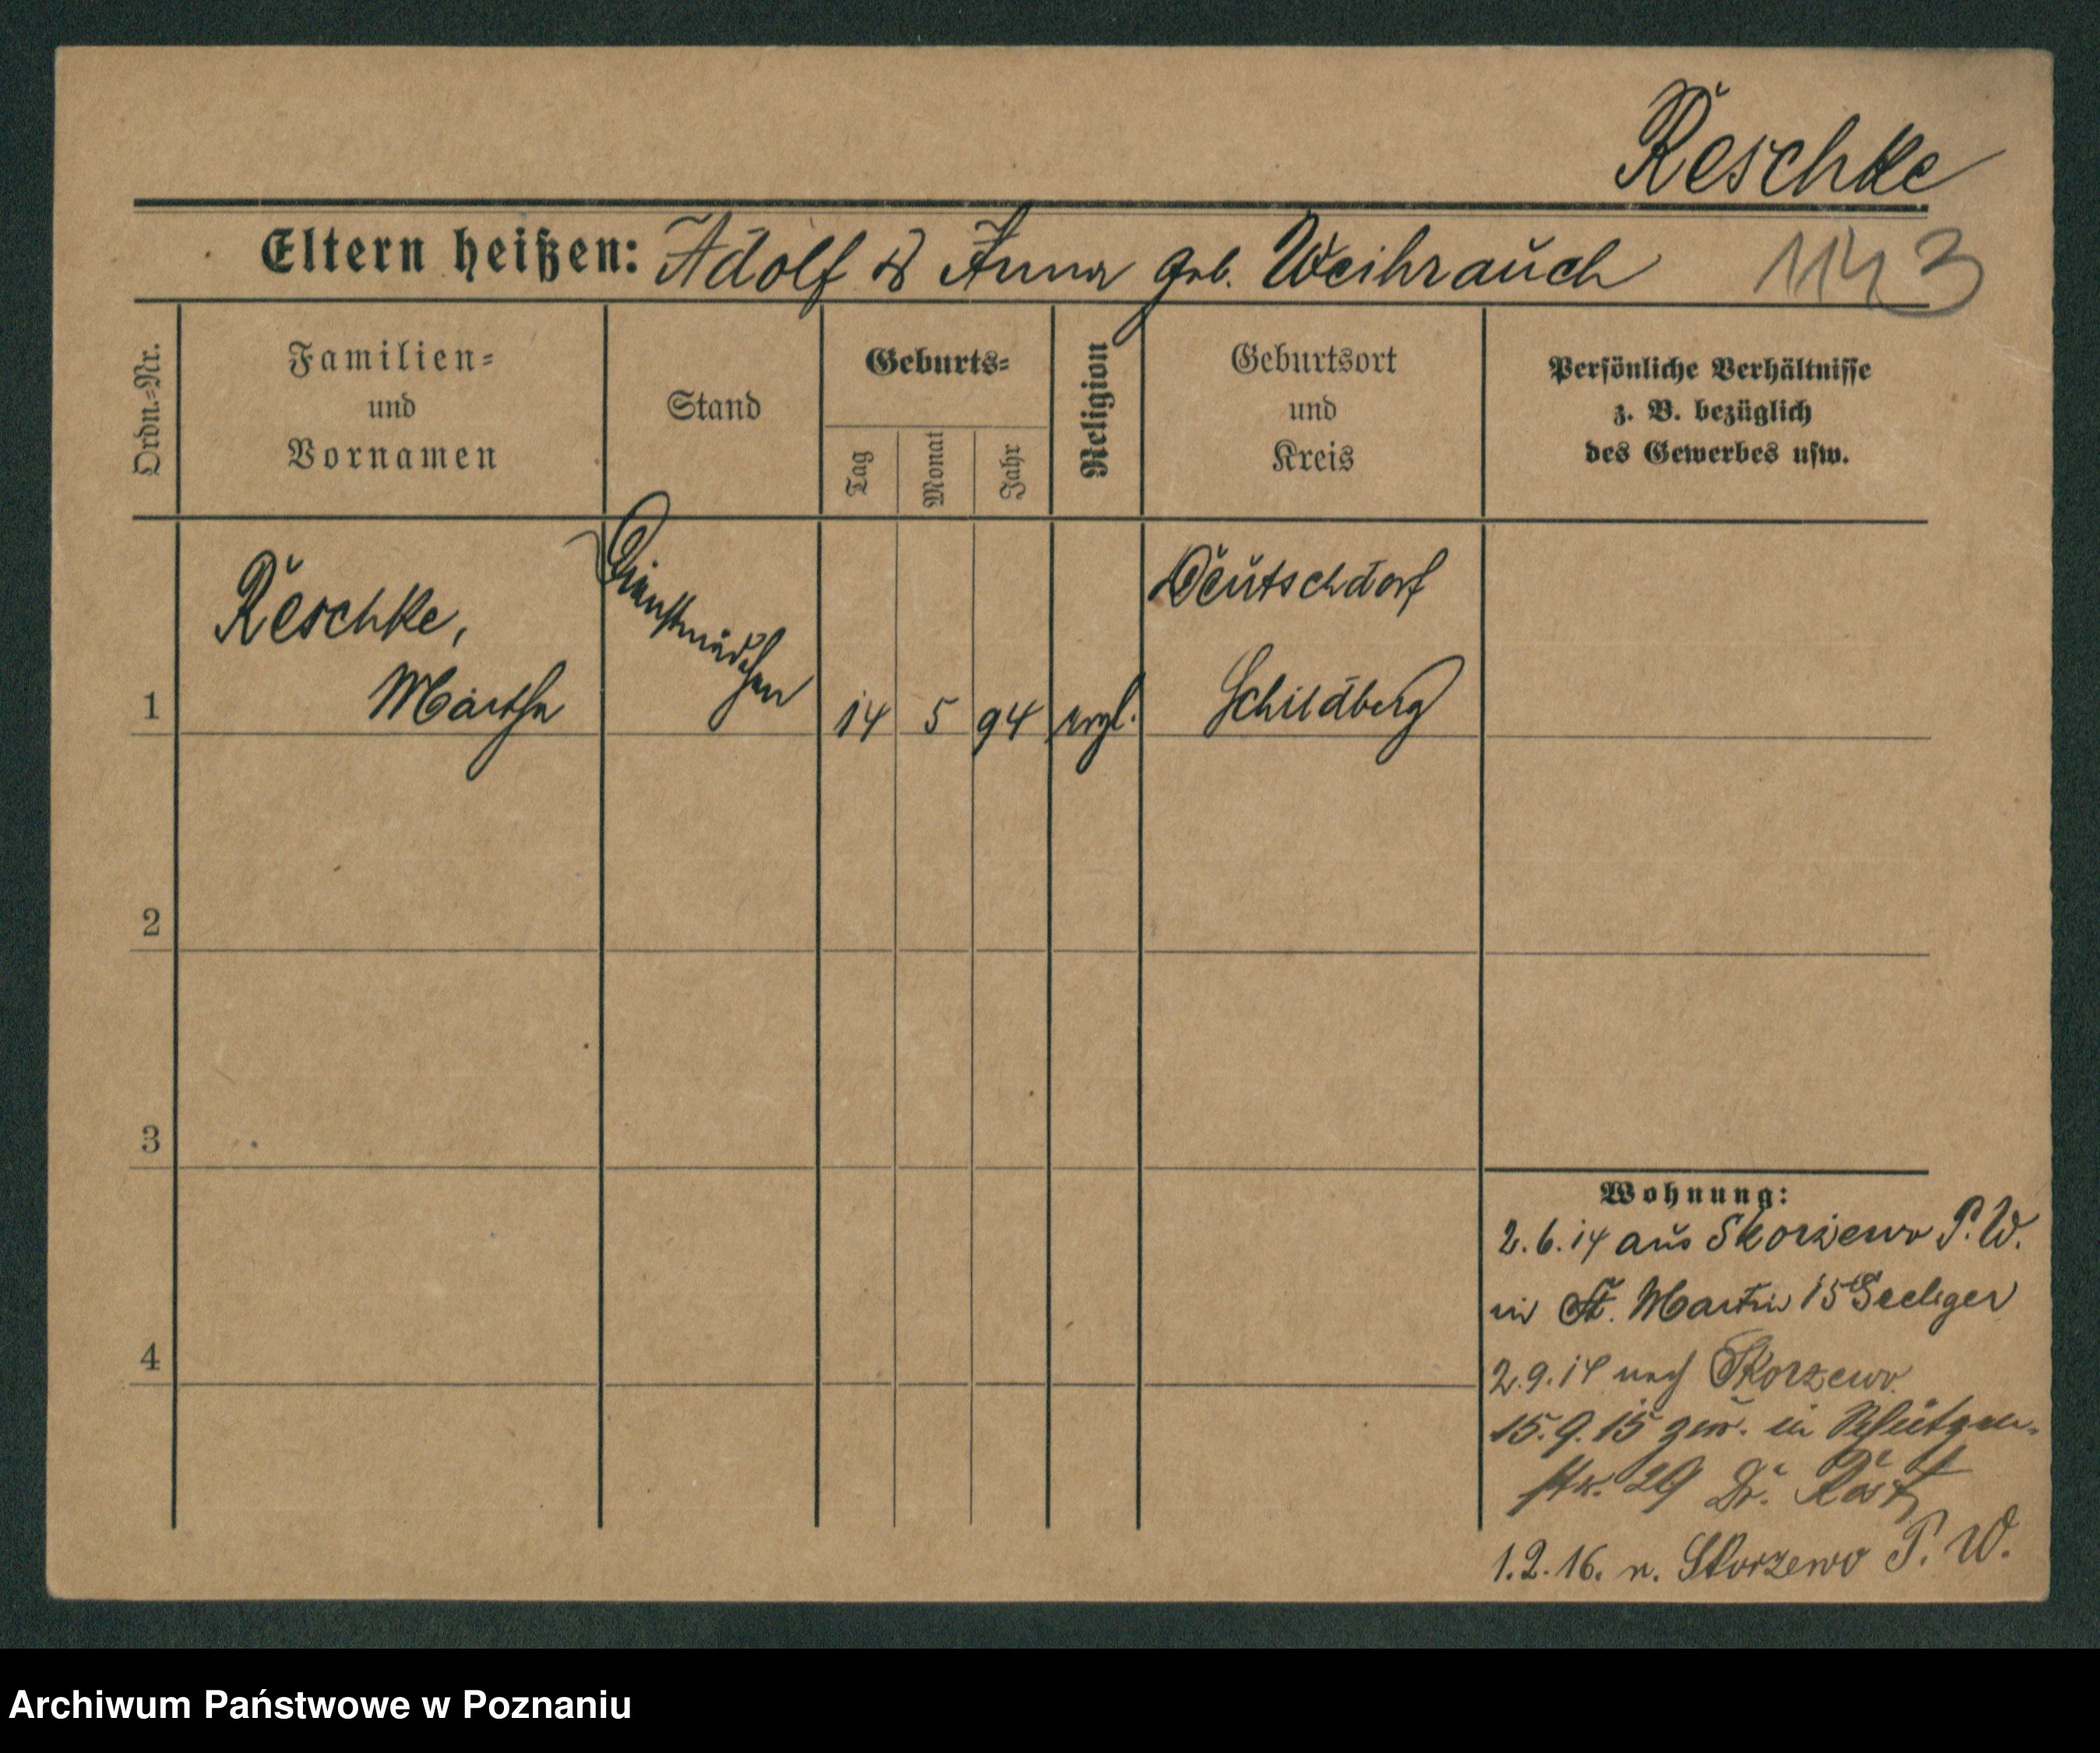 Reschke
Eltern heißen: Adolf & Anna geb. Weihrauch 1143
Ordn.=Nr.
Familien=
und
Vornamen
Stand
Geburts=
Tag
Monat
Jahr
Religion
Geburtsort
und
Kreis
Persönliche Verhältnisse
z. B. bezüglich
des Gewerbes usw.
1
Reschke,
Martha
Dienstmädchen
14 5 94 evgl.
Deutschdorf
Schildberg
2
3
4
Wohnung:
2.6.14 aus Skorzewo P.W.
in St. Martin 15 Seeliger
2.9.14 nach Skorzewo
15.9.15 zur. in Schützen-
str. 29 Dr.
1.2.16. n. Skorzewo P. W.
Archiwum Państwowe w Poznaniu